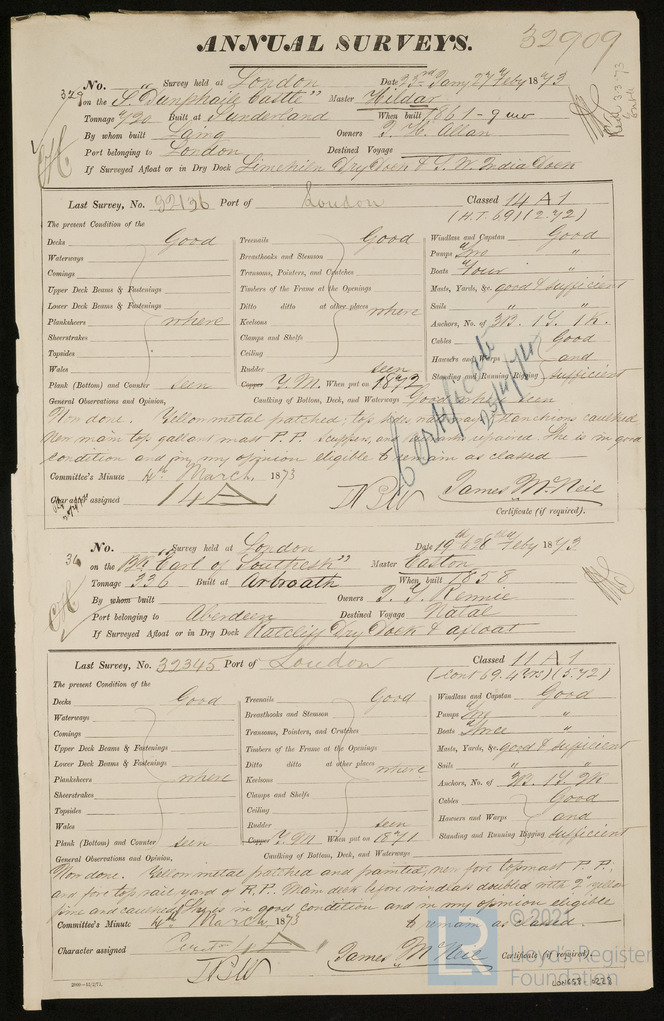 32909
ANNUAL SURVEYS.
No. „ Survey held at London Date 23rd Jany 27 Feby 1873
329 on the S. "Dunphaile Castle" Master Kildar
Tonnage 920 Built at Sunderland When built 1861 - 9 mo
By whom built Laing Owners T. H. Allan
Port belonging to London Destined Voyage
If Surveyed Afloat or in Dry Dock Limekiln Dry Dock & S. W. India Dock
Last Survey, No. 32136 Port of London Classed 14 A 1
(H.T. 69) (2.72)
The present Condition of the
Decks Good Treenails Good Windlass and Capstan Good
Waterways Breasthooks and Stemson Pumps Two „
Comings Transoms, Pointers, and Crutches Boats Four „
Upper Deck Beams & Fastenings Timbers of the Frame at the Openings Masts, Yards, &c. good & sufficient
Lower Deck Beams & Fastenings Ditto ditto at other places where Sails „ „
Planksheers where Keelsons Anchors, No. of 3B. 1S. 1K.
Sheerstrakes Clamps and Shelfs Cables Good
Topsides Ceiling Hawsers and Warps and
Wales Rudder seen Standing and Running Rigging sufficient
Plank (Bottom) and Counter seen Copper Y.M. When put on 1872
General Observations and Opinion, Caulking of Bottom, Deck, and Waterways Good where seen
Now done. Yellow metal patched; top sides, waterways & stanchions caulked
New main top gallant mast P.P. scuppers, and repaired. She is in good
condition and in my opinion eligible to remain as classed
Committee's Minute 4th March 1873
Character assigned 14 A James McNeil
Certificate (if required).
Certificate
No. „ Survey held at London Date 19th & 28th Feby 1873
on the Bk "Earl of Southesk" Master Easton
Tonnage 336 Built at Arbroath When built 1858
By whom built Owners T. G. Rennie
Port belonging to Aberdeen Destined Voyage Natal
If Surveyed Afloat or in Dry Dock Ratcliff Dry Dock & afloat
Last Survey, No. 32345 Port of London Classed 11 A 1
(Cont 69. 4 yrs) (5.72)
The present Condition of the
Decks Good Treenails Good Windlass and Capstan Good
Waterways Breasthooks and Stemson Pumps „
Comings Transoms, Pointers, and Crutches Boats Three „
Upper Deck Beams & Fastenings Timbers of the Frame at the Openings Masts, Yards, &c. good & sufficient
Lower Deck Beams & Fastenings Ditto ditto at other places where Sails „ „
Planksheers where Keelsons Anchors, No. of 3B. 1S. 2K
Sheerstrakes Clamps and Shelfs Cables Good
Topsides Ceiling Hawsers and Warps and
Wales Rudder seen Standing and Running Rigging sufficient
Plank (Bottom) and Counter seen Copper Y.M When put on 1871
General Observations and Opinion, Caulking of Bottom, Deck, and Waterways
Now done. Yellow metal patched and painted, new fore topmast P.P.,
and fore top sail yard of R.P. Main deck before windlass doubled with 2" yellow
pine and caulked. She is in good condition and in my opinion eligible
Committee's Minute 4th March 1873 to remain as classed.
Character assigned A James McNeil Certificate (if required).
2000—12/2/72.
© 2021
LR Lloyd's Register
Foundation
LON658-0228